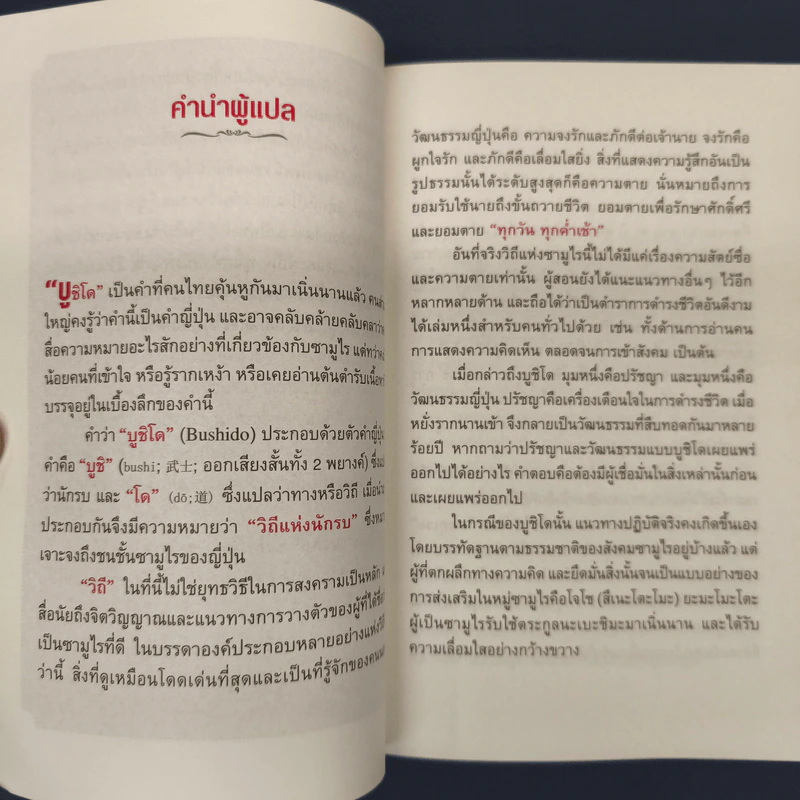 คำนำผู้แปล
“บูชิโด” เป็นคำที่คนไทยคุ้นหูกันมาเนิ่นนานแล้ว คนส่วน
ใหญ่คงรู้ว่าคำนี้เป็นคำญี่ปุ่น และอาจคลับคล้ายคลับคลาว่า
สื่อความหมายอะไรสักอย่างที่เกี่ยวข้องกับซามูไร แต่ทว่า
น้อยคนที่เข้าใจ หรือรู้รากเหง้า หรือเคยอ่านต้นตำรับเนื้อหา
บรรจุอยู่ในเบื้องลึกของคำนี้
คำว่า “บูชิโด” (Bushido) ประกอบด้วยตัวคำญี่ปุ่น
คำคือ “บูชิ” (bushi; 武士; ออกเสียงสั้นทั้ง 2 พยางค์) ซึ่ง
ว่านักรบ และ “โด” (dō; 道) ซึ่งแปลว่าทางหรือวิถี เมื่อ
ประกอบกันจึงมีความหมายว่า “วิถีแห่งนักรบ” ซึ่ง
เจาะจงถึงชนชั้นซามูไรของญี่ปุ่น
“วิถี” ในที่นี้ไม่ใช่ยุทธวิธีในการสงครามเป็นหลัก
สื่อนัยถึงจิตวิญญาณและแนวทางการวางตัวของผู้ที่ได้ชื่อ
เป็นซามูไรที่ดี ในบรรดาองค์ประกอบหลายอย่างแห่งวิถี
ว่านี้ สิ่งที่ดูเหมือนโดดเด่นที่สุดและเป็นที่รู้จักของคน
วัฒนธรรมญี่ปุ่นคือ ความจงรักและภักดีต่อเจ้านาย จงรักคือ
ผูกใจรัก และภักดีคือเลื่อมใสยิ่ง สิ่งที่แสดงความรู้สึกอันเป็น
รูปธรรมนั้นได้ระดับสูงสุดก็คือความตาย นั่นหมายถึงการ
ยอมรับใช้นายถึงขั้นถวายชีวิต ยอมตายเพื่อรักษาศักดิ์ศรี
และยอมตาย “ทุกวัน ทุกค่ำเช้า”
อันที่จริงวิถีแห่งซามูไรนี้ไม่ได้มีแค่เรื่องความสัตย์ซื่อ
และความตายเท่านั้น ผู้สอนยังได้แนะแนวทางอื่นๆ ไว้อีก
หลากหลายด้าน และถือได้ว่าเป็นตำราการดำรงชีวิตอันดีงาม
ได้เล่มหนึ่งสำหรับคนทั่วไปด้วย เช่น ทั้งด้านการอ่านคน
การแสดงความคิดเห็น ตลอดจนการเข้าสังคม เป็นต้น
เมื่อกล่าวถึงบูชิโด มุมหนึ่งคือปรัชญา และมุมหนึ่งคือ
วัฒนธรรมญี่ปุ่น ปรัชญาคือเครื่องเตือนใจในการดำรงชีวิต เมื่อ
หยั่งรากนานเข้า จึงกลายเป็นวัฒนธรรมที่สืบทอดกันมาหลาย
ร้อยปี หากถามว่าปรัชญาและวัฒนธรรมแบบบูชิโดเผยแพร่
ออกไปได้อย่างไร คำตอบคือต้องมีผู้เชื่อมั่นในสิ่งเหล่านั้นก่อน
และเผยแพร่ออกไป
ในกรณีของบูชิโดนั้น แนวทางปฏิบัติจริงคงเกิดขึ้นเอง
โดยบรรทัดฐานตามธรรมชาติของสังคมซามูไรอยู่บ้างแล้ว แต่
ผู้ที่ตกผลึกทางความคิด และยึดมั่นสิ่งนั้นจนเป็นแบบอย่างของ
การส่งเสริมในหมู่ซามูไรคือโจโช (สึเนะโตะโมะ) ยะมะโมะโตะ
ผู้เป็นซามูไรรับใช้ตระกูลนะเบะชิมะมาเนิ่นนาน และได้รับ
ความเลื่อมใสอย่างกว้างขวาง